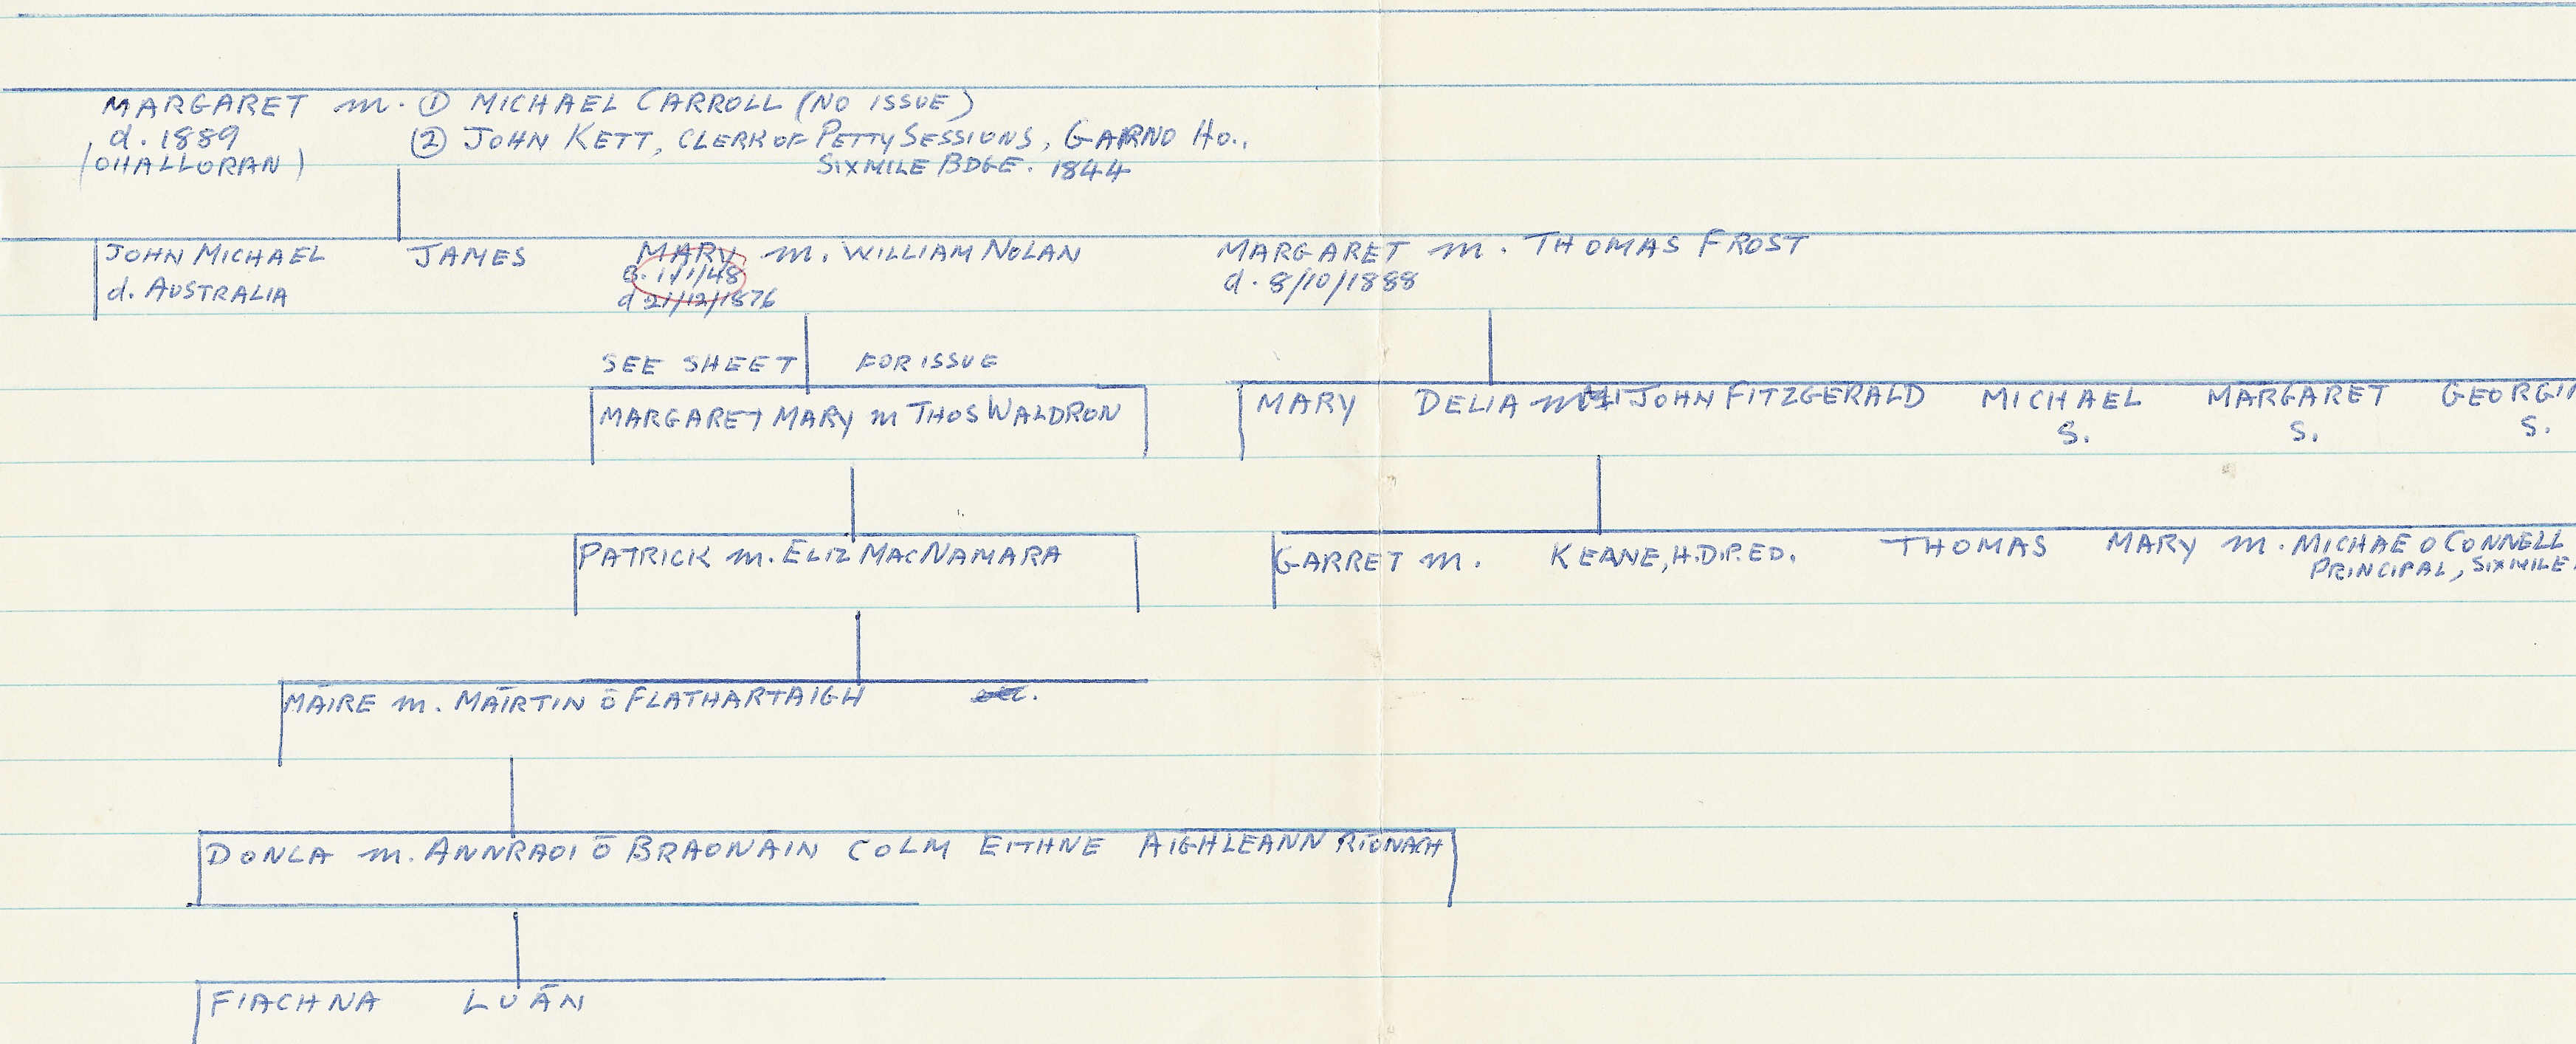 MARGARET m. ① MICHAEL CARROLL (NO ISSUE)
d. 1889 ② JOHN KETT, CLERK OF PETTY SESSIONS, GARNO HO.,
(OHALLORAN) SIXMILE BDGE. 1844
JOHN MICHAEL JAMES MARY m. WILLIAM NOLAN MARGARET m. THOMAS FROST
d. AUSTRALIA B. 1/1/48 d. 8/10/1888
d 21/12/1876
SEE SHEET FOR ISSUE
MARGARET MARY m THOS WALDRON MARY DELIA m JOHN FITZGERALD MICHAEL MARGARET GEORGIN
S. S. S.
PATRICK m. ELIZ MACNAMARA GARRET m. KEANE, H.DIP.ED. THOMAS MARY m. MICHAE O CONNELL
PRINCIPAL, SIXMILE
MÁIRE m. MÁIRTIN Ó FLATHARTAIGH
DONLA m. ANNRAOI Ó BRAONAIN COLM EITHNE AIGHLEANN RÍONACH
FIACHNA LUÁN